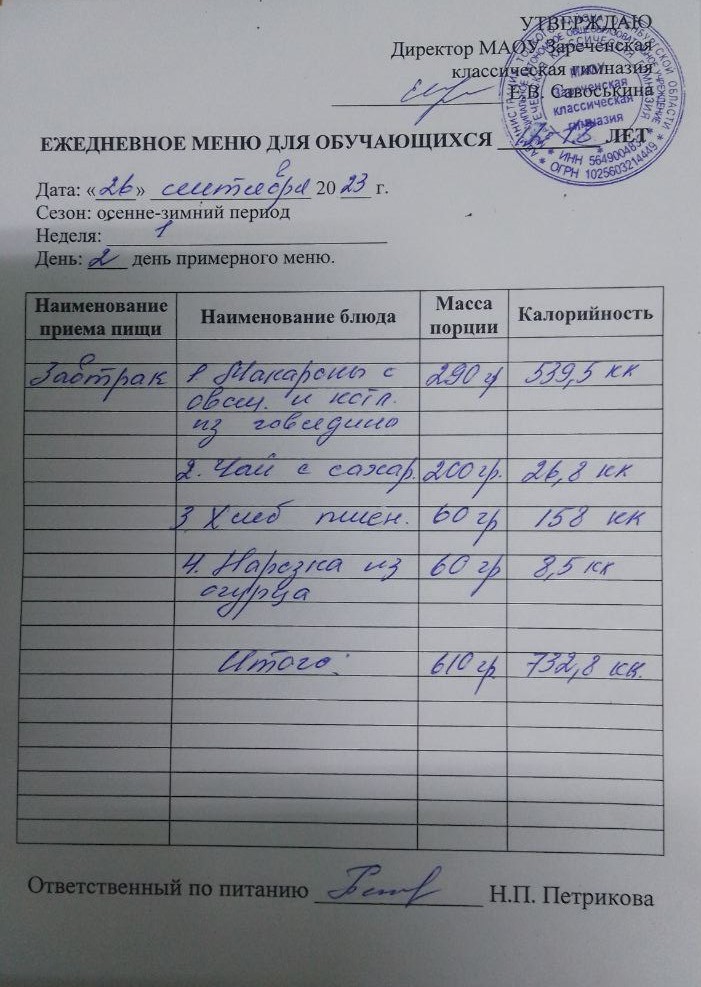 УТВЕРЖДАЮ
Директор МАОУ Зареченская
классическая гимназия
Е.В. Савоськина
МАОУ
Зареченская
классическая
гимназия
* ИНН 56490048
* ОГРН 1025603214449 *
ЕЖЕДНЕВНОЕ МЕНЮ ДЛЯ ОБУЧАЮЩИХСЯ 12-18 ЛЕТ
Дата: «26» сентября 2023 г.
Сезон: осенне-зимний период
Неделя: 1
День: 2 день примерного меню.
Наименование приема пищи Наименование блюда Масса порции Калорийность
Завтрак 1. Макароны с 290 гр 539,5 кк
овощ. и котл.
из говядины
2. Чай с сахар. 200 гр. 26,8 кк
3 Хлеб пшен. 60 гр 158 кк
4. Нарезка из 60 гр 8,5 кк
огурца
Итого: 610 гр 732,8 кк.
Ответственный по питанию Н.П. Петрикова